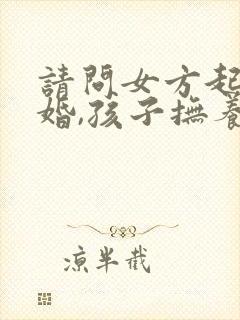 請問女方起
婚,孩子撫養
涼半截